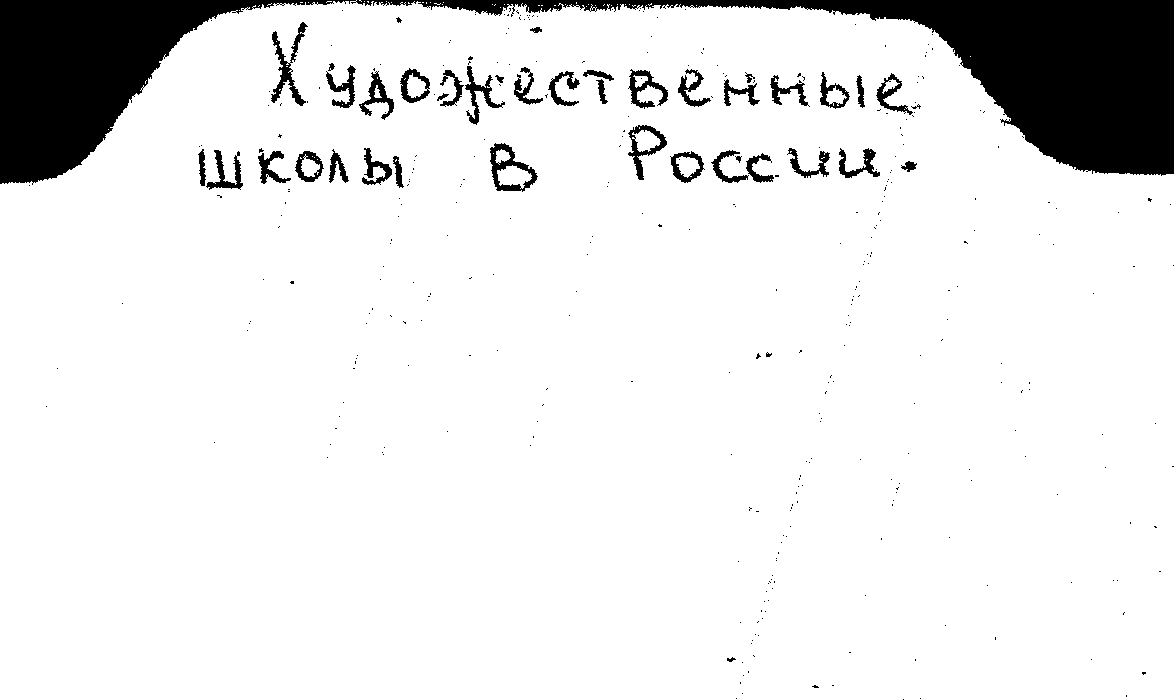 Художественные
школы в России.